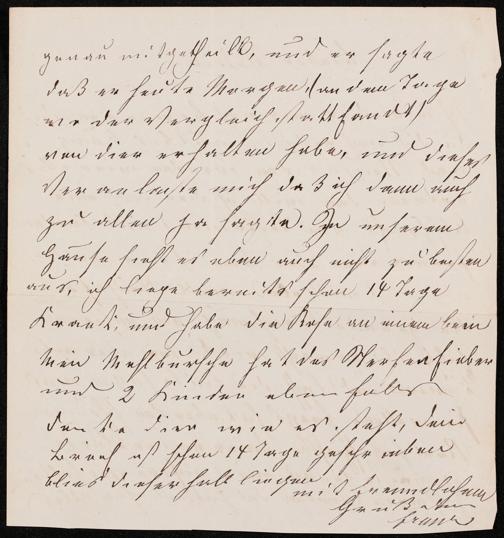 genau mitgetheilt, und er sagte
daß er heute Morgen (an dem Tage
wo der Vergleich stattfandt)
von dier erhalten habe, und dieses
Veranlaste mich daß ich dann auch
zu allen ja sagte. In unserem
Hause sieht es eben auch nicht zu besten
aus, ich liege bereits schon 14 Tage
Krank, und habe die Rose an einem bein
Mein Mehlbursche hat das Nerfenfieber
und 2 Kinder ebenfalls
denke dier wie es steht, dein
Brief ist schon 14 Tage geschrieben
blieb dieserhalb liegen
mit freundlichem
Gruß